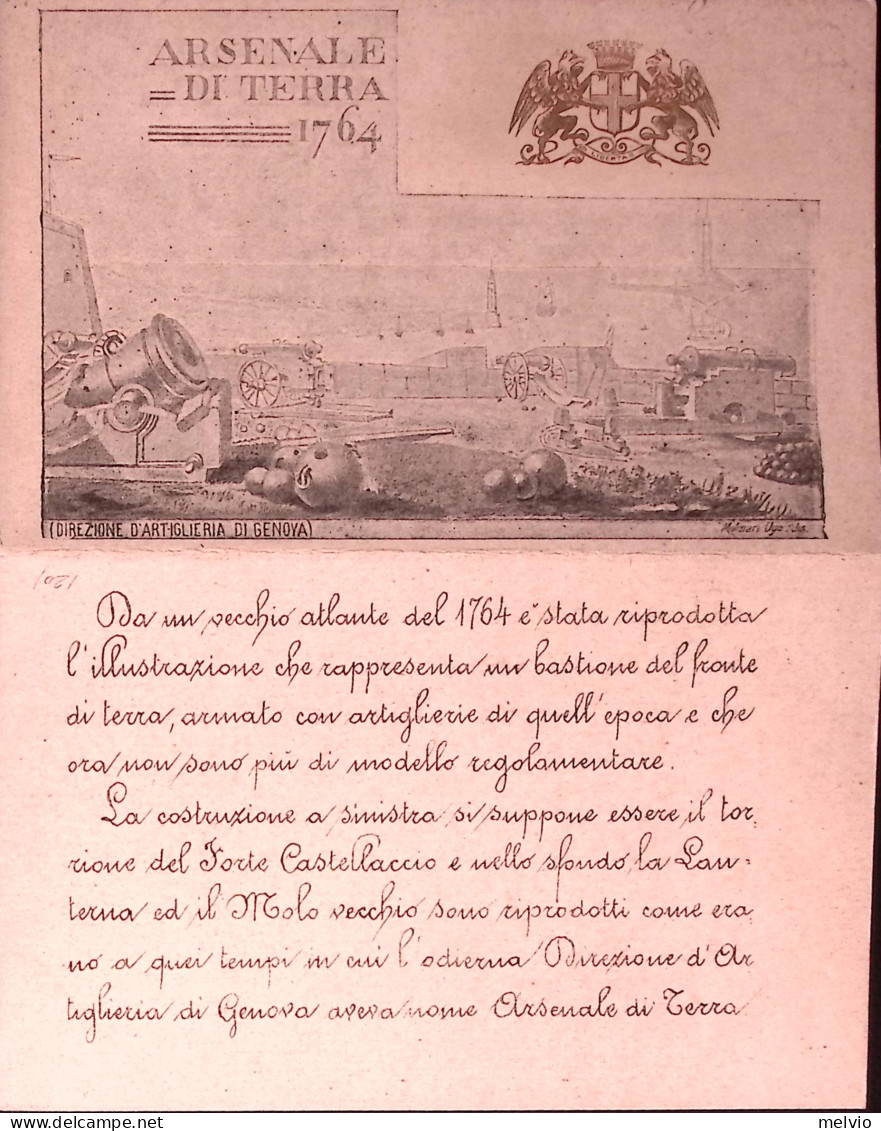 ARSENALE
DI TERRA
1764
LIBERTAS
(DIREZIONE D'ARTIGLIERIA DI GENOVA)
Ugo
1201
Da un vecchio atlante del 1764 è stata riprodotta
l'illustrazione che rappresenta un bastione del fronte
di terra, armato con artiglierie di quell'epoca e che
ora non sono più di modello regolamentare.
La costruzione a sinistra si suppone essere il tor-
rione del Forte Castellaccio e nello sfondo la Lan-
terna ed il Molo vecchio sono riprodotti come era
no a quei tempi in cui l'odierna Direzione d'Ar
tiglieria di Genova aveva nome Arsenale di Terra
delcampe.net
melvio